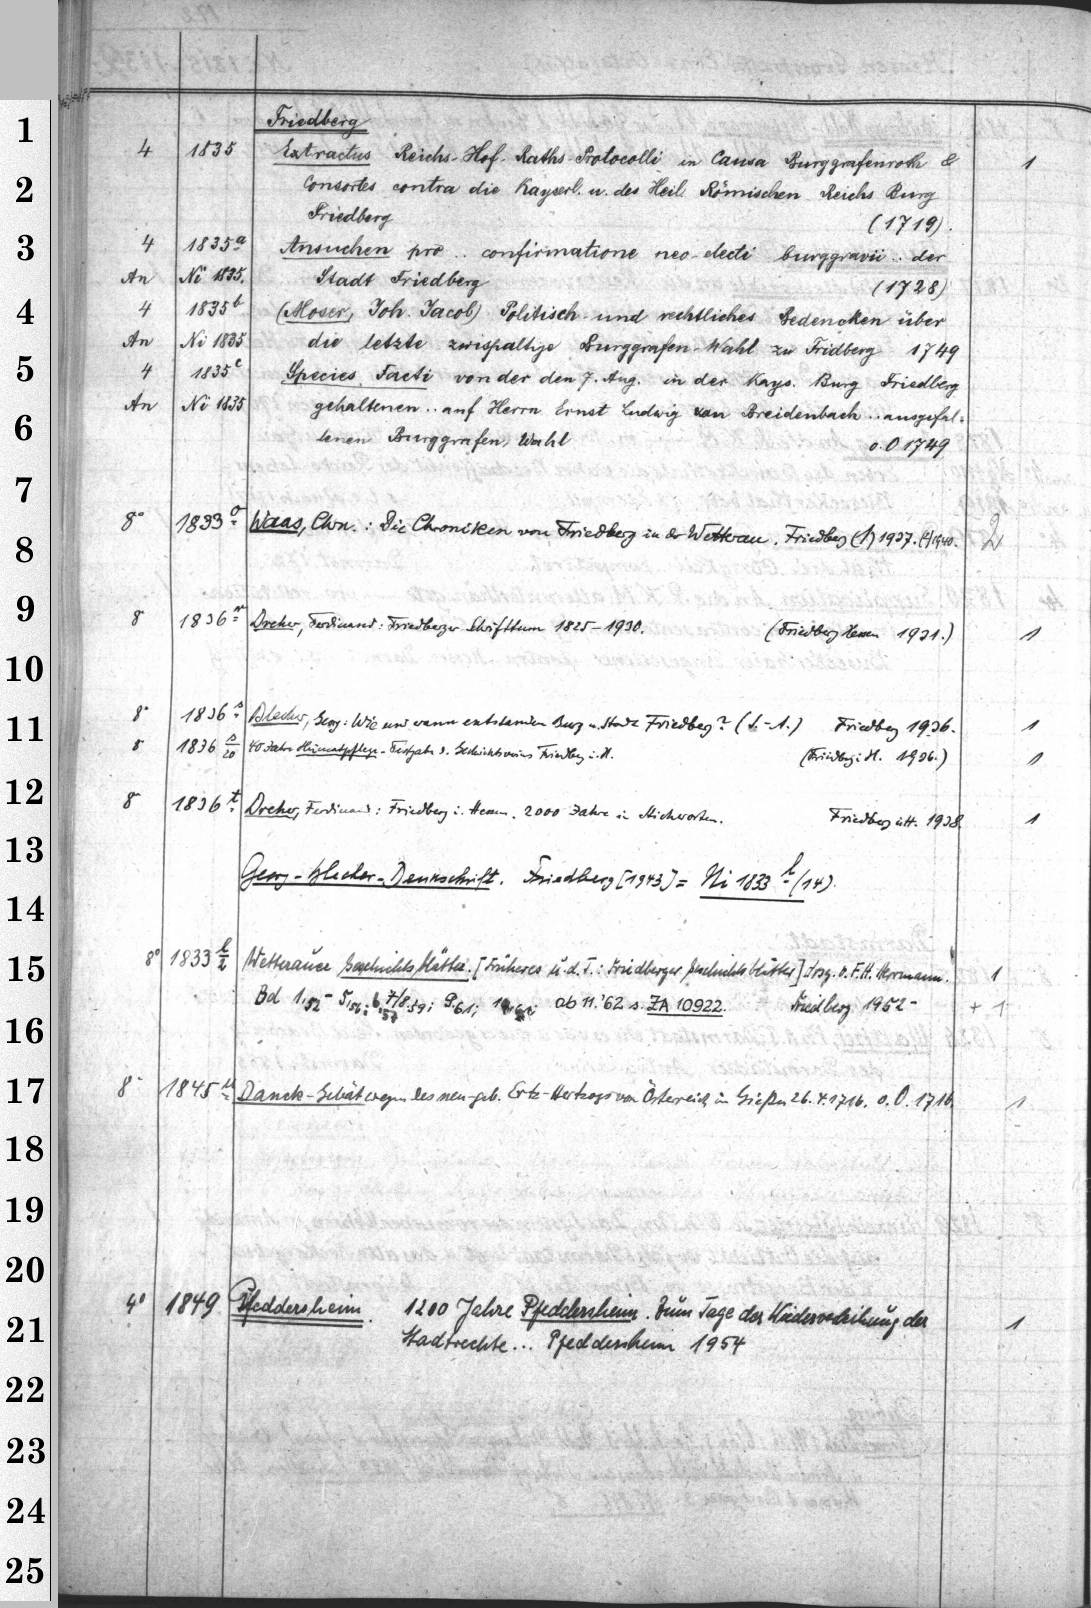 Friedberg
4 1835 Extractus Reichs-Hof-Raths-Protocolli in Causa Burggrafenroth & 1
Consortes contra die Kayserl. u. des Heil. Römischen Reichs Burg
Friedberg (1719).
4 1835a Ansuchen pro .. confirmatione neo-electi burggravii .. der
An Ni 1835. Stadt Friedberg (1728)
4 1835b (Moser, Joh. Jacob) Politisch- und rechtliches Bedencken über
An Ni 1835 die letzte zwispaltige Burggrafen-Wahl zu Fridberg 1749
4 1835c Species Facti von der den 7. Aug. in der Kays. Burg Friedberg
An Ni 1835 gehaltenen .. auf Herrn Ernst Ludwig von Breidenbach .. ausgefal-
lenen Burggrafen-Wahl o.O 1749
8° 1833 Waas, Chn.: Die Chroniken von Friedberg in der Wetterau. Friedberg (1) 1937. (2) 1940. 2
8° 1836r Dreher, Ferdinand: Friedberger Schrifttum 1825-1930. (Friedberg Hessen 1931.) 1
8° 1836s Blecher, Georg: Wie und wann entstanden Burg u. Stadt Friedberg? (S.-A.) Friedberg 1936. 1
8° 1836 s/20 40 Jahre Heimatpflege. Festgabe d. Geschichtsvereins Friedberg i. H. (Friedberg i. H. 1936.) 1
8° 1836t Dreher, Ferdinand: Friedberg i. Hessen. 2000 Jahre in Stichworten. Friedberg i. H. 1938. 1
Georg-Blecher-Denkschrift. Friedberg [1943] = Ni 1833 l (14).
8° 1833 l/2 Wetterauer Geschichtsblätter. [Früheres u. d. T.: Friedberger Geschichtsblätter] Hrsg. v. F. H. Herrmann. 1
Bd 1,52 - 5,56; 6,57 7/8,59; 9,61; ab 11.'62 s. ZA 10922. Friedberg 1952- + 1
8° 1845 Danck-Gebät wegen des neu-geb. Ertz-Hertzogs von Österreich in Gießen 26.4.1716. o.O. 1716. 1
4° 1849 Pfeddersheim. 1200 Jahre Pfeddersheim. Zum Tage der Wiederverleihung der 1
Stadtrechte... Pfeddersheim 1954
1
2
3
4
5
6
7
8
9
10
11
12
13
14
15
16
17
18
19
20
21
22
23
24
25